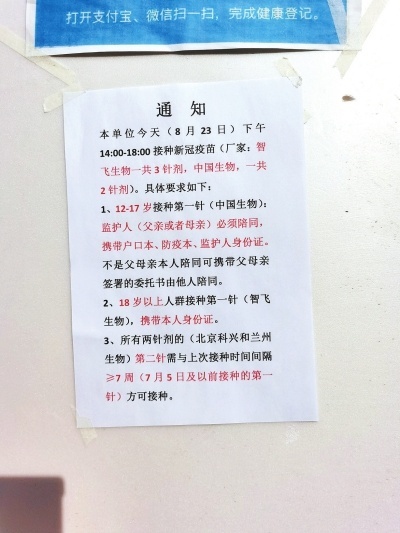 打开支付宝、微信扫一扫，完成健康登记。
通 知
本单位今天（8 月 23 日）下午
14:00-18:00 接种新冠疫苗（厂家：智
飞生物一共 3 针剂，中国生物，一共
2 针剂）。具体要求如下：
1、12-17 岁接种第一针（中国生物）：
监护人（父亲或者母亲）必须陪同，
携带户口本、防疫本、监护人身份证。
不是父母亲本人陪同可携带父母亲
签署的委托书由他人陪同。
2、18 岁以上人群接种第一针（智飞
生物），携带本人身份证。
3、所有两针剂的（北京科兴和兰州
生物）第二针需与上次接种时间间隔
≥7 周（7 月 5 日及以前接种的第一
针）方可接种。